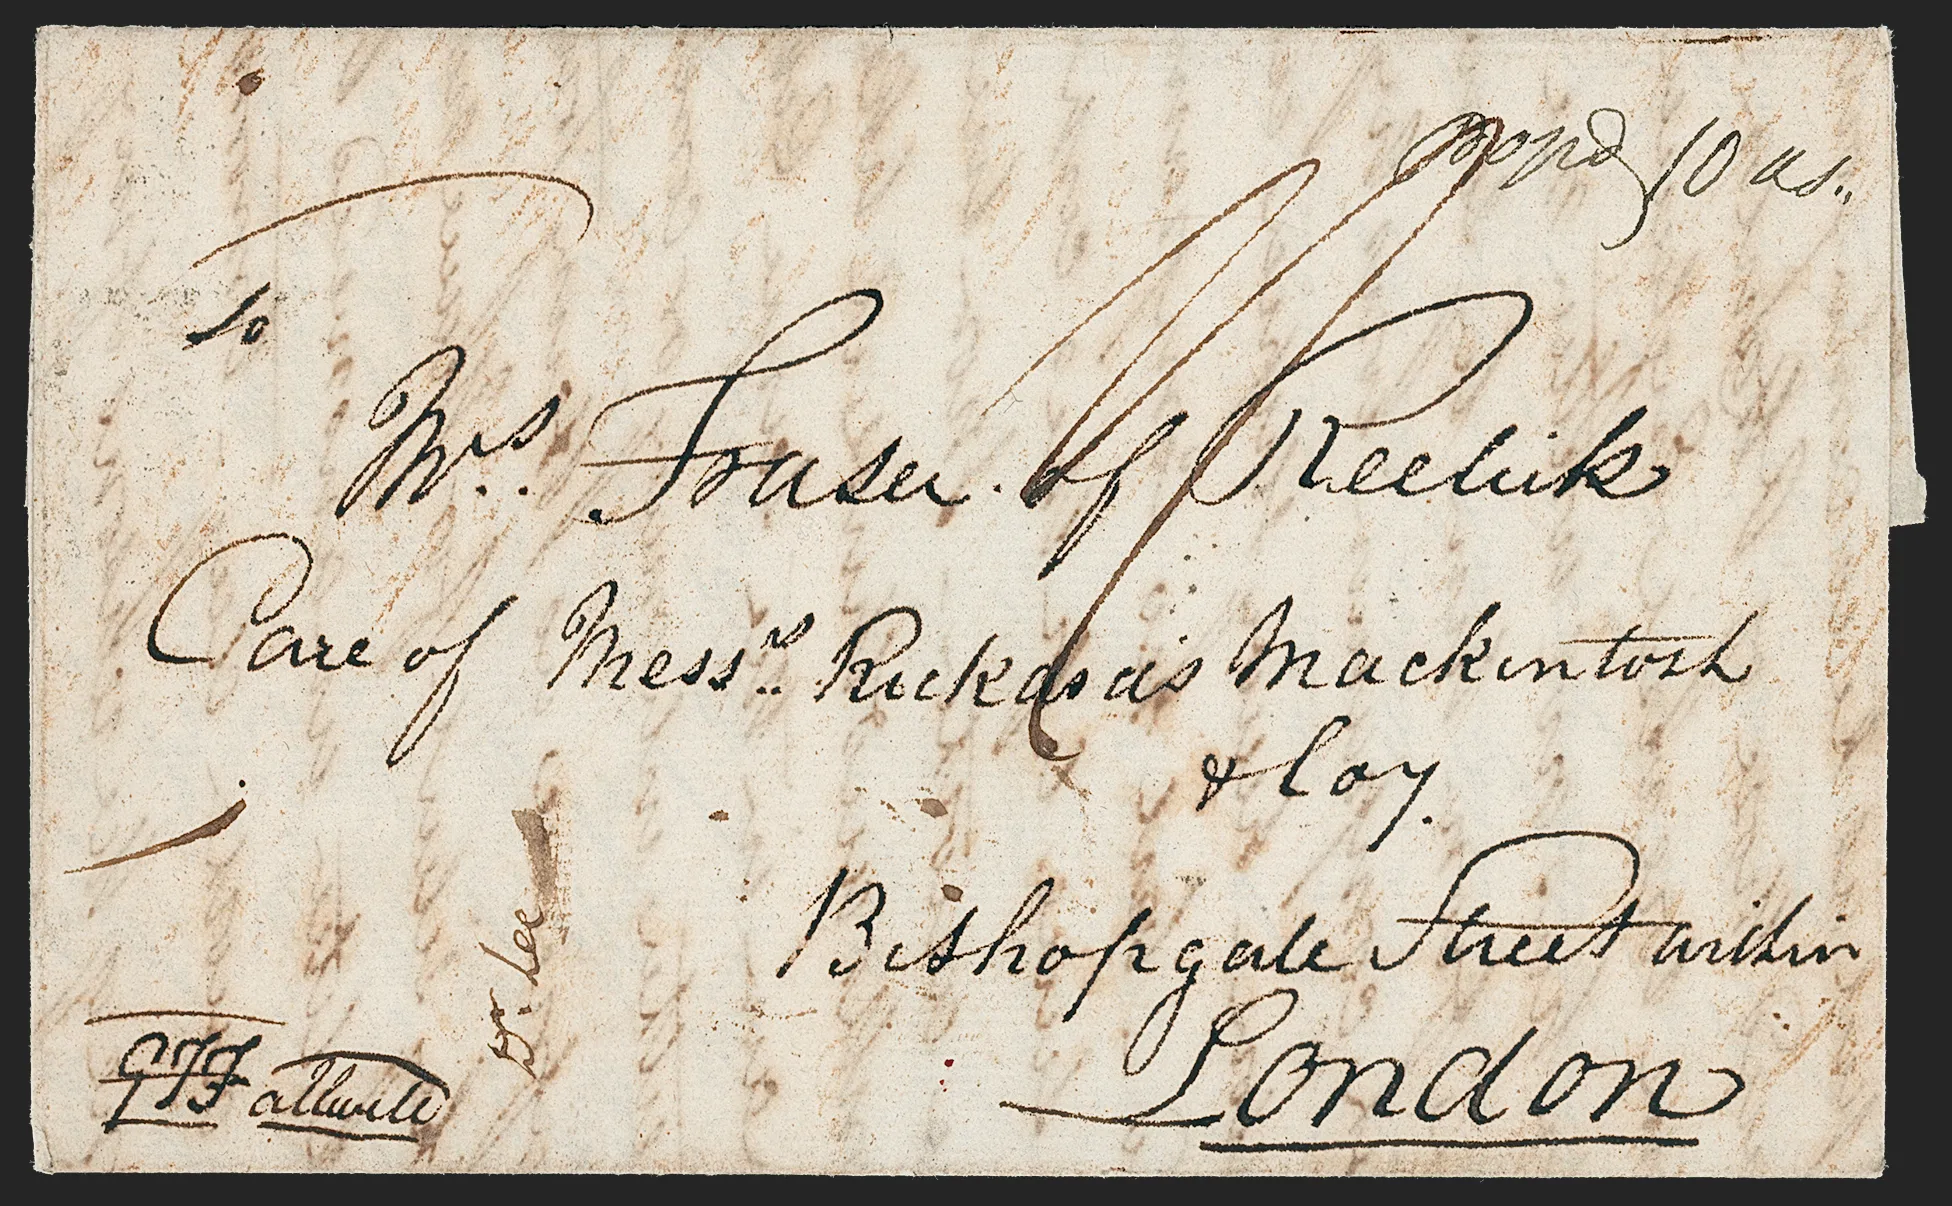 10 as.
To
Mrs. Fraser of Reelick
Care of Messrs. Rickards Mackintosh
& Coy.
Bishopgate Street within
London